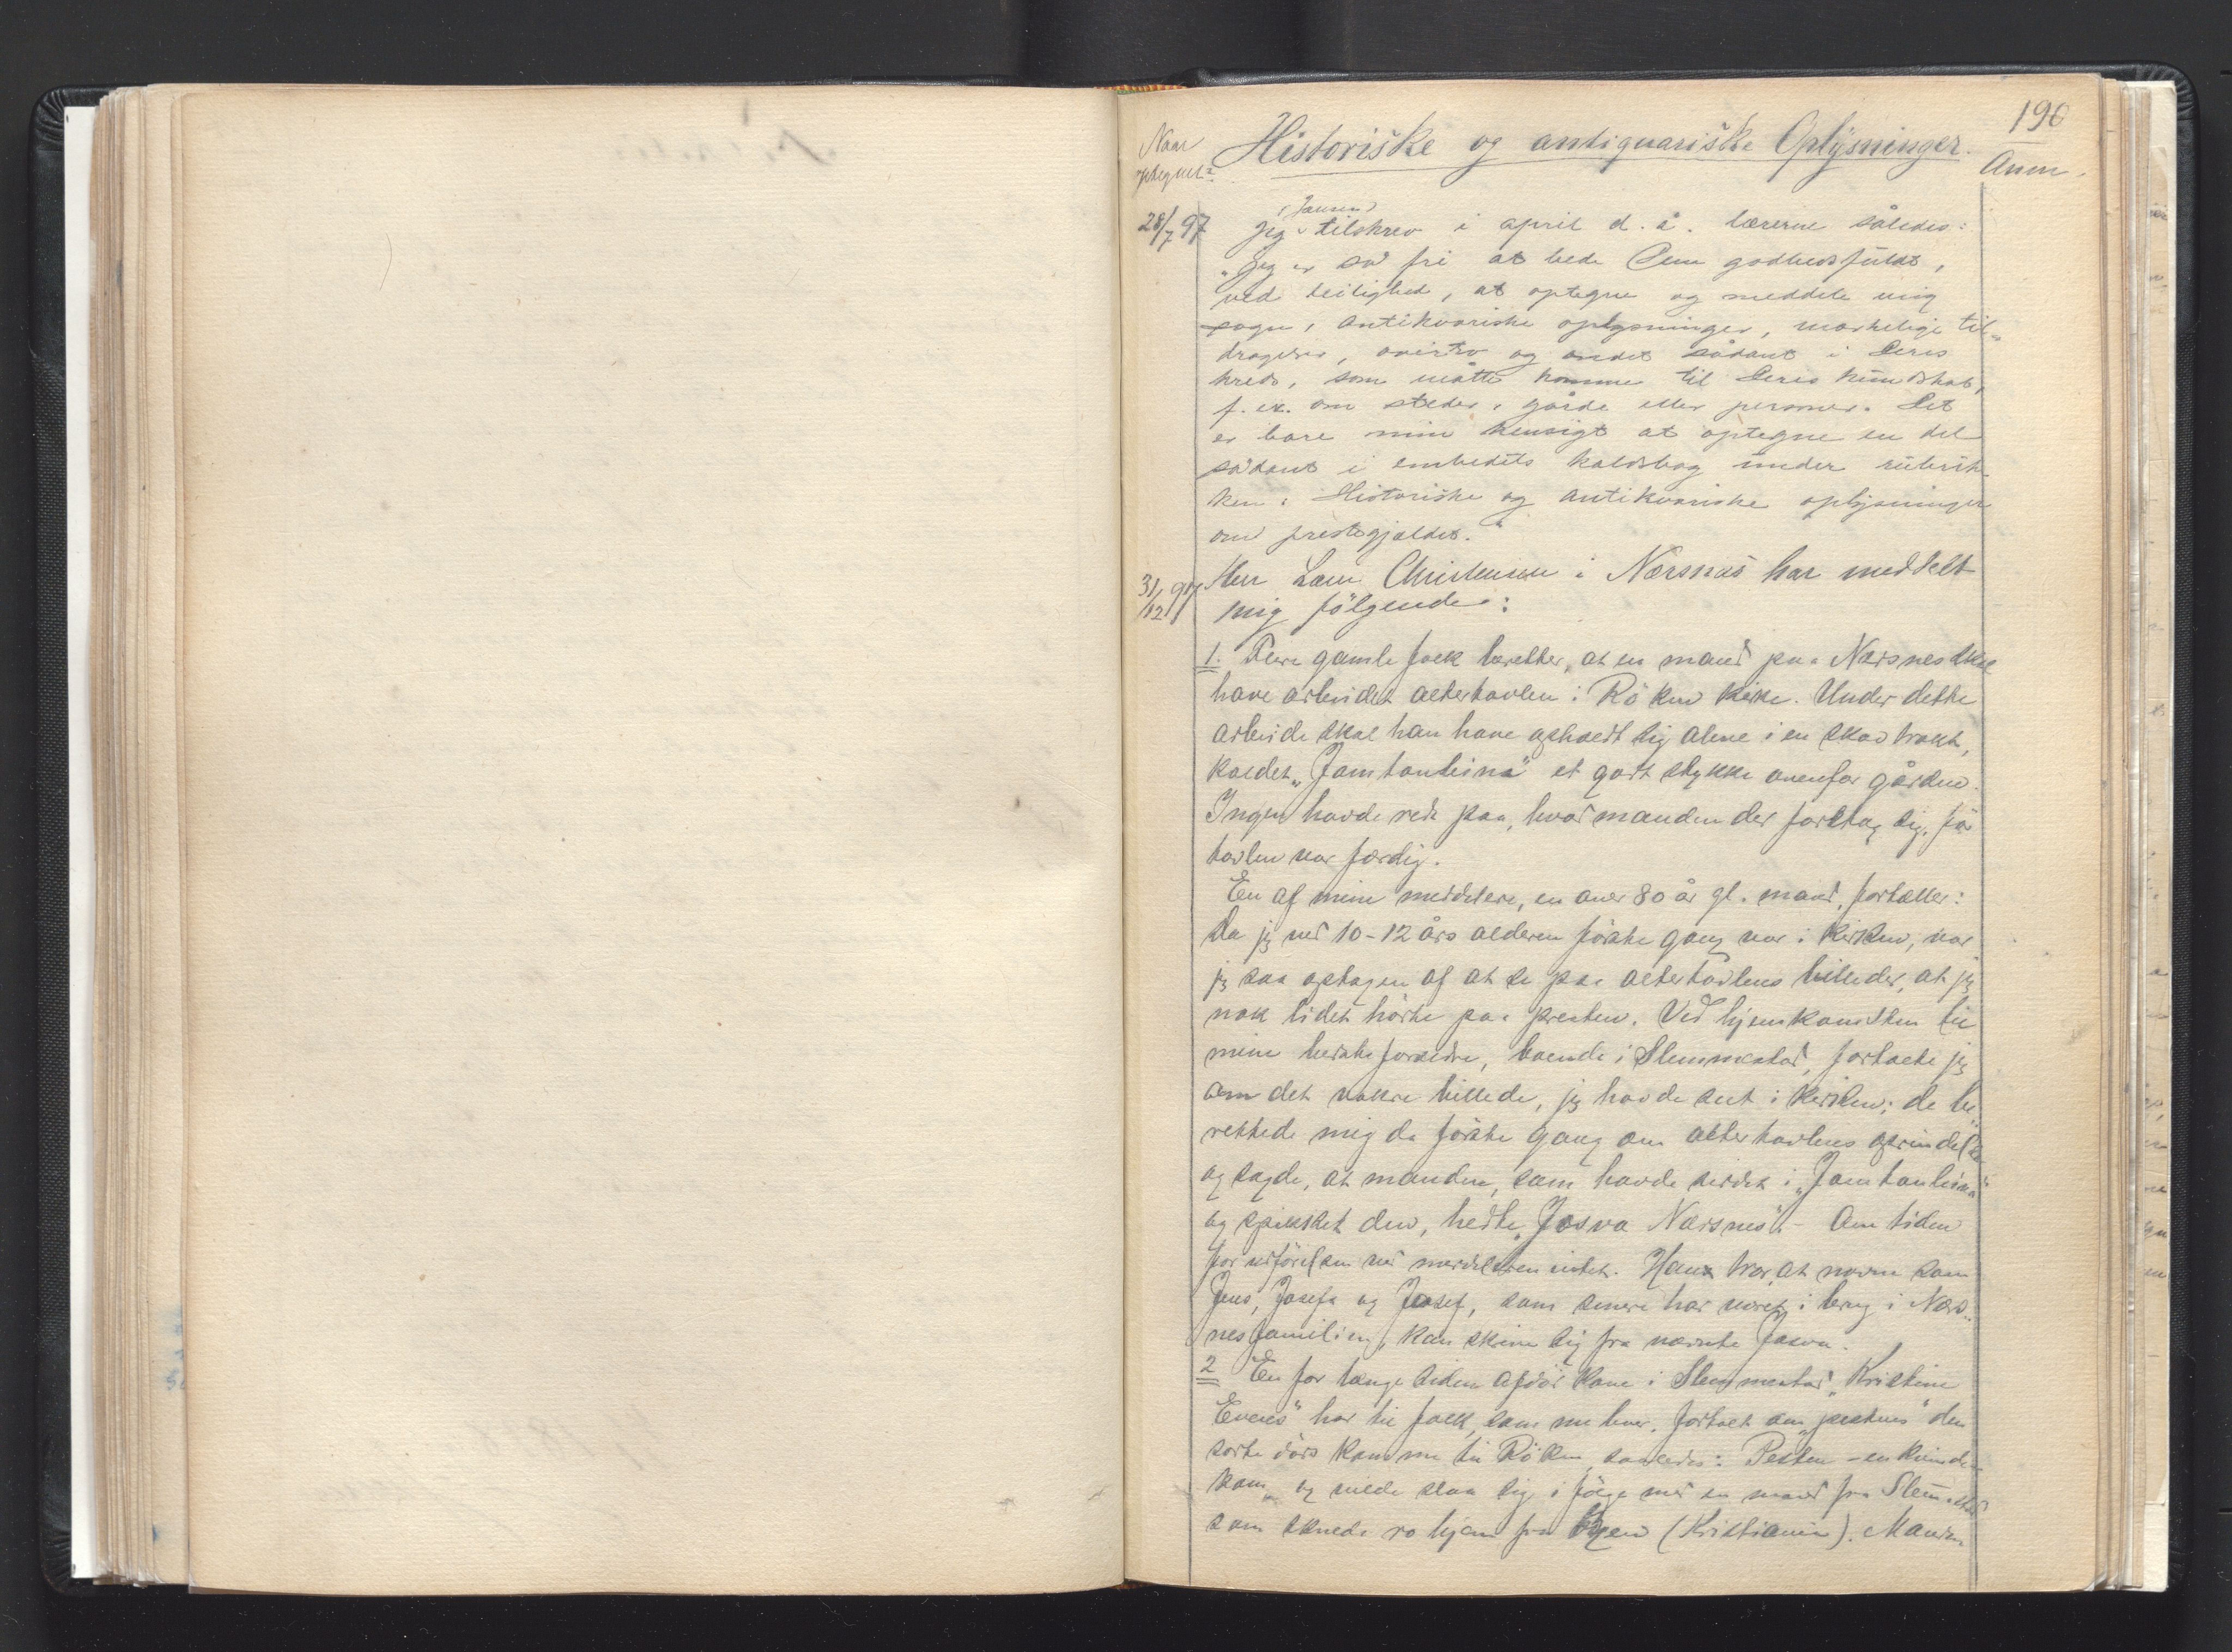 190
Naar
optegnet?
Historiske og antiquariske Oplysninger.
Anm.
(Jansen)
28/7 97 Jeg tilskrev i april d. å. lærerne således:
"Jeg er så fri at bede Dem godhedsfuldt,
ved leilighed, at optegne og meddele mig
sagn, antikvariske oplysninger, merkelige til-
dragelser, overtro og andet sådant i Deres
kreds, som måtte komme til Deres kundskab,
f. ex. om steder, gårde eller personer. Det
er bare min hensigt at optegne en del
sådant i embedets kaldsbog under rubrik-
ken: Historiske og antikvariske oplysninger
om prestegjeldet."
31/12 97 Herr Laur. Christensen i Nærsnæs har meddelt
mig fölgende:
1. Flere gamle folk beretter, at en mand paa Nærsnes skal
have arbeidet altertavlen i Röken kirke. Under dette
arbeide skal han have opholdt sig alene i en skovtrakt,
kaldet "Jamtanleina" et godt stykke ovenfor gården.
Ingen havde rede paa, hvad manden der foretog sig, för
tavlen var færdig.
En af mine meddelere, en over 80 år gl. mand, fortæller:
Da jeg ved 10-12 års alderen förste gang var i kirken, var
jeg saa optagen af at se paa altertavlens billeder, at jeg
nok lidet hörte paa presten. Ved hjemkomsten til
mine bedsteforældre, boende i Slemmestad, fortalte jeg
om det vakre billede, jeg havde seet i kirken; de be-
rettede mig da förste gang om altertavlens oprindelse
og sagde, at manden, som havde siddet i "Jamtanleina"
og spikket den, hedte "Josva Nærsnes". - Om tiden
for udförelsen ved meddeleren intet. Han tror, at navne som
Jens, Josefa og Josef, som senere har været i brug i Nærs-
nesfamilien, kan skrive sig fra nævnte Josva.
2 En for længe siden afdöd kone i Slemmestad, "Kristine
Evenes" har til folk, som nu lever, fortalt om "pesten" den
sorte döds komme til Röken saaledes: Pesten - en kvinde -
kom og vilde slaa sig i fölge med en mand fra Slemmestad
som skulde ro hjem fra byen (Kristiania). Manden